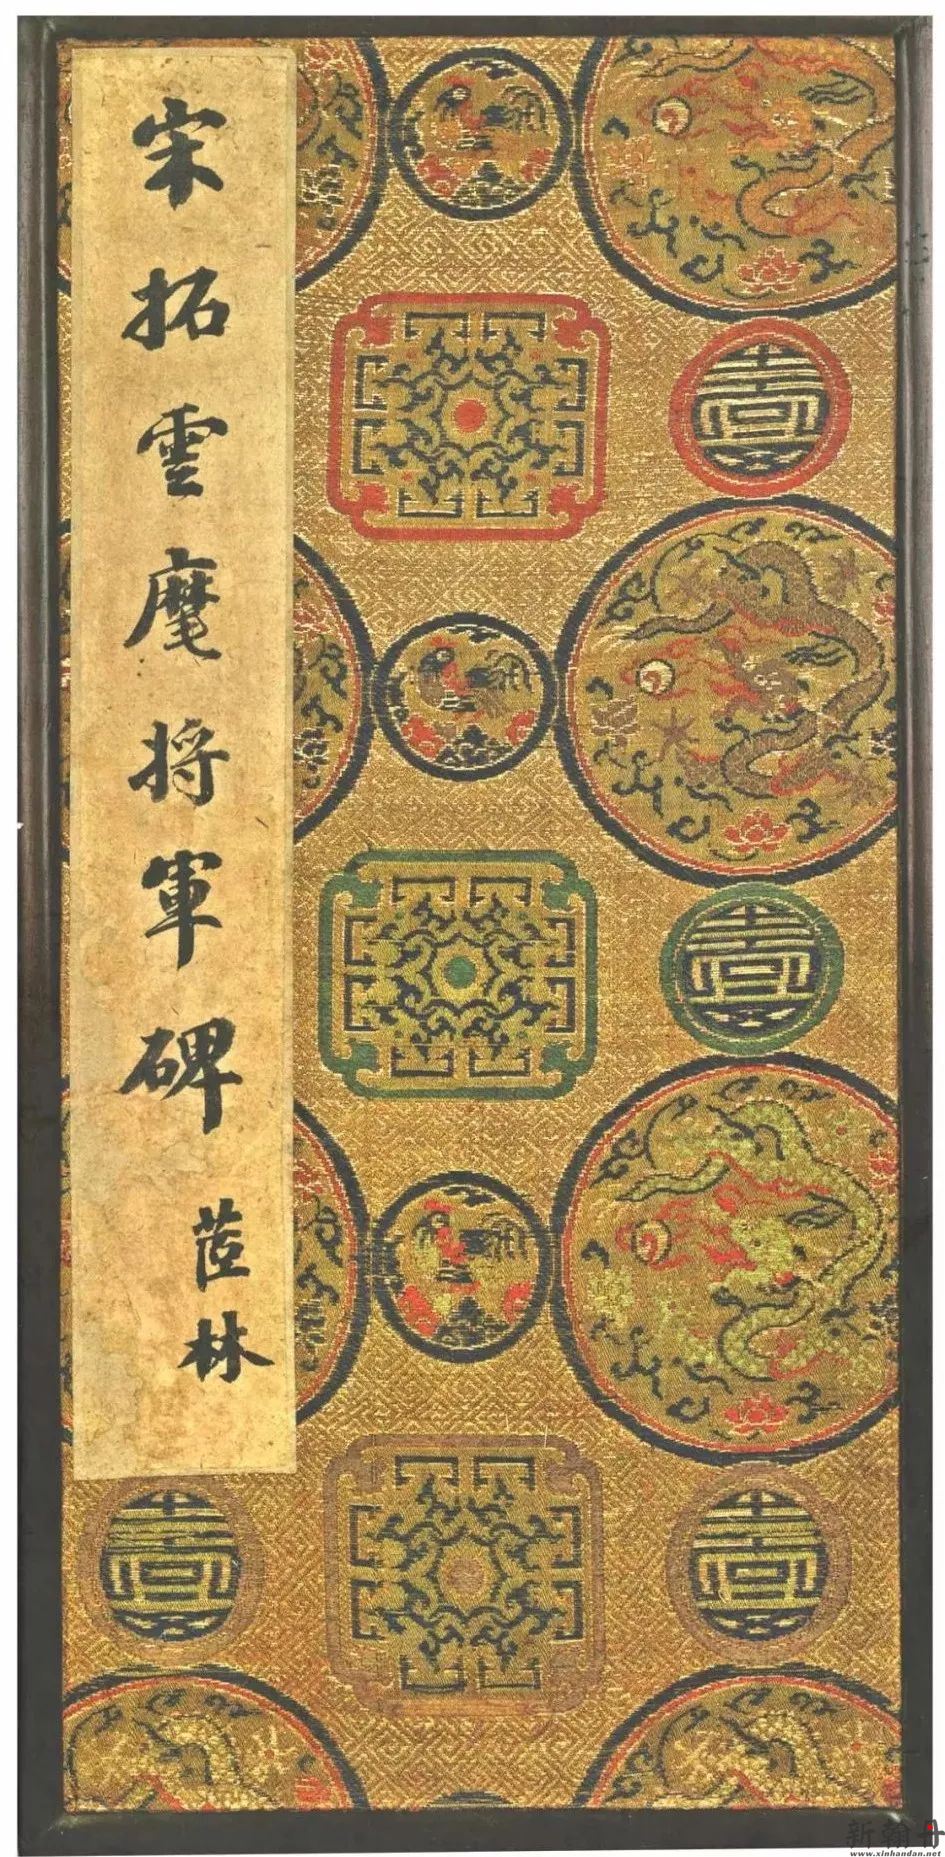 宋拓雲麾將軍碑
茝林
新翰丹
www.xinhandan.net